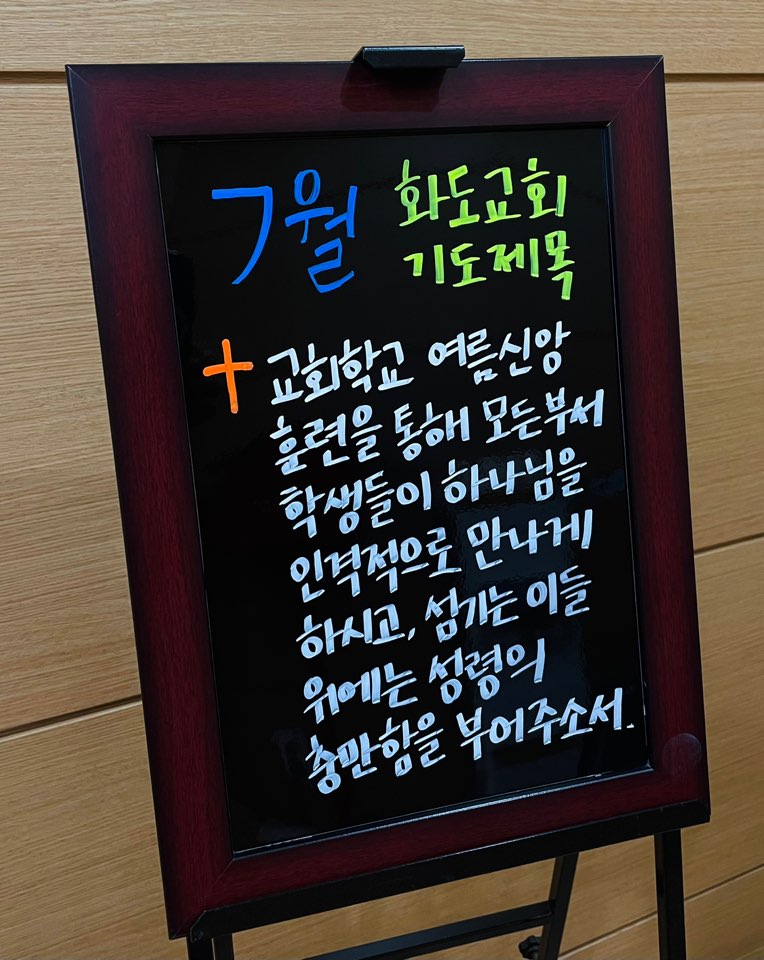 7월 화도교회
기도제목
+ 교회학교 여름신앙
훈련을 통해 모든부서
학생들이 하나님을
인격적으로 만나게
하시고, 섬기는 이들
위에는 성령의
충만함을 부어주소서.